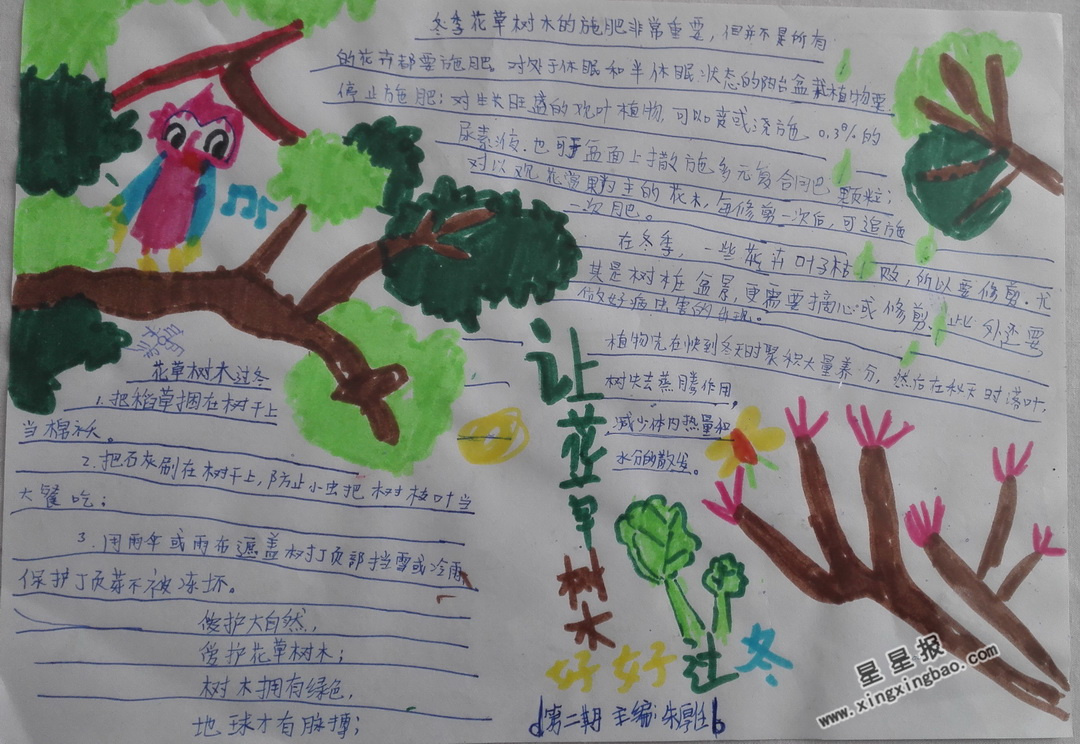 冬季花草树木的施肥非常重要，但并不是所有
的花卉都要施肥。对处于休眠和半休眠状态的阳台盆栽植物要
停止施肥；对生长旺盛的观叶植物，可以浇施 0.3%的
尿素液.也可于盆面上撒施多元复合肥颗粒；
对以观花赏果为主的花木，每修剪一次后，可追施
一次肥。
在冬季，一些花卉叶子枯败，所以要修剪.尤
其是树桩盆景，更需要摘心或修剪、此外还要
做好病虫害的
植物先在快到冬天时聚积大量养分，然后在秋天时落叶，
树失去蒸腾作用，
减少体内热量和
水分的散发。
花草树木过冬
1.把稻草捆在树干上
当棉袄。
2.把石灰刷在树干上，防止小虫把树枝叶当
大餐吃；
3.用雨伞或雨布遮盖树顶部挡雪或冷雨
保护顶芽不被冻坏。
爱护大自然，
爱护花草树木；
树木拥有绿色，
地球才有脉搏；
让花草树木
好好过冬
第二期 主编：朱
星星报
www.xingxingbao.com